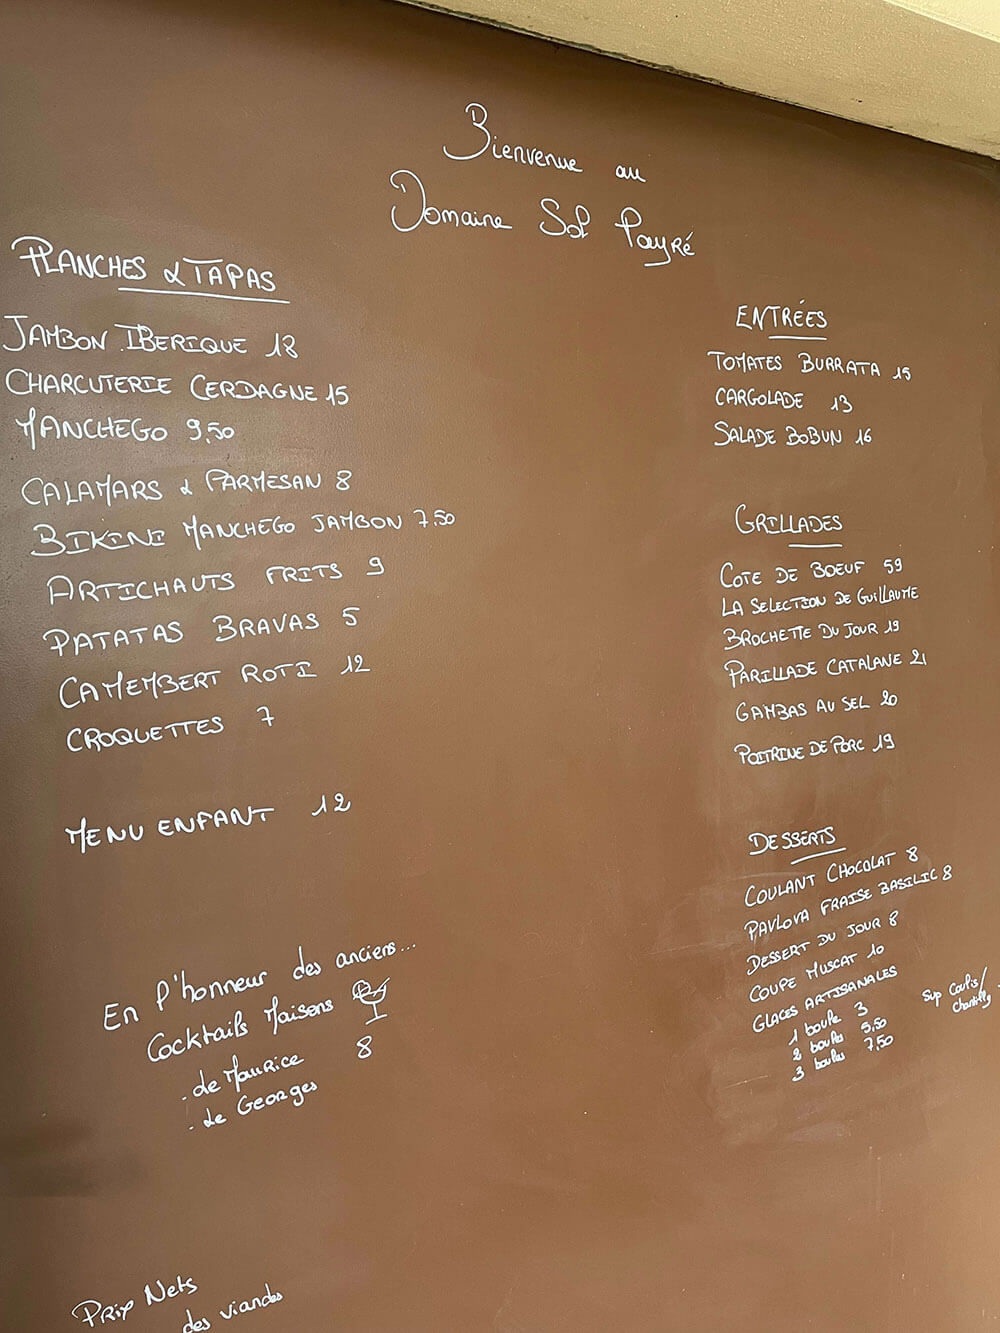 Bienvenue au
Domaine Sol Payré
PLANCHES & TAPAS
JAMBON IBERIQUE 18
CHARCUTERIE CERDAGNE 15
MANCHEGO 9,50
CALAMARS & PARMESAN 8
BIKINI MANCHEGO JAMBON 7,50
ARTICHAUTS FRITS 9
PATATAS BRAVAS 5
CAMEMBERT ROTI 12
CROQUETTES 7
MENU ENFANT 12
En l'honneur des anciens...
Cocktails Maisons
. de Maurice 8
. de Georges
Prix Nets
des viandes
ENTRÉES
TOMATES BURRATA 15
CARGOLADE 13
SALADE BOBUN 16
GRILLADES
COTE DE BOEUF 59
LA SELECTION DE GUILLAUME
BROCHETTE DU JOUR 19
PARILLADE CATALANE 21
GAMBAS AU SEL 20
POITRINE DE PORC 19
DESSERTS
COULANT CHOCOLAT 8
PAVLOVA FRAISE BASILIC 8
DESSERT DU JOUR 8
COUPE MUSCAT 10
GLACES ARTISANALES
1 boule 3
2 boules 5,50
3 boules 7,50
Sup Coulis/
chantilly